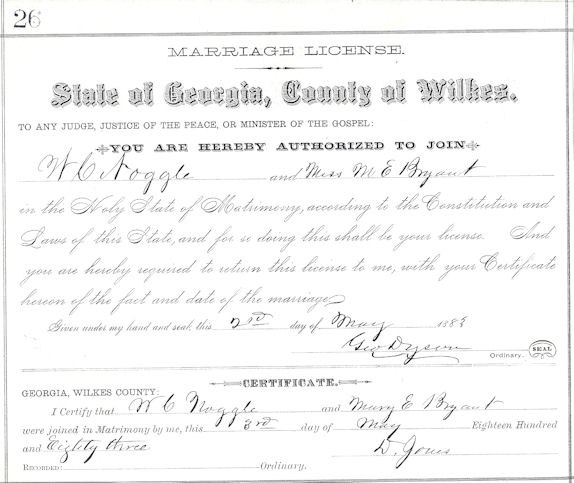 26
MARRIAGE LICENSE.
State of Georgia, County of Wilkes.
TO ANY JUDGE, JUSTICE OF THE PEACE, OR MINISTER OF THE GOSPEL:
YOU ARE HEREBY AUTHORIZED TO JOIN
W C Noggle and Miss M E Bryant
in the Holy State of Matrimony, according to the Constitution and
Laws of this State, and for so doing this shall be your license. And
you are hereby required to return this license to me, with your Certificate
hereon of the fact and date of the marriage
Given under my hand and seal, this 2nd day of May 1883
Geo Dyson Ordinary. SEAL
CERTIFICATE.
GEORGIA, WILKES COUNTY:
I Certify that W C Noggle and Mary E Bryant
were joined in Matrimony by me, this 3rd day of May Eighteen Hundred
and Eighty three D. Jones
RECORDED: Ordinary.